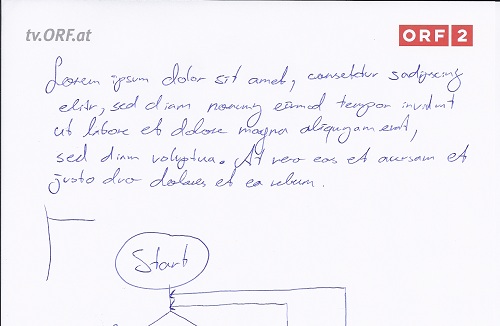 tv.ORF.at
ORF 2
Lorem ipsum dolor sit amet, consetetur sadipscing
elitr, sed diam nonumy eirmod tempor invidunt
ut labore et dolore magna aliquyam erat,
sed diam voluptua. At vero eos et accusam et
justo duo dolores et ea rebum.
Start